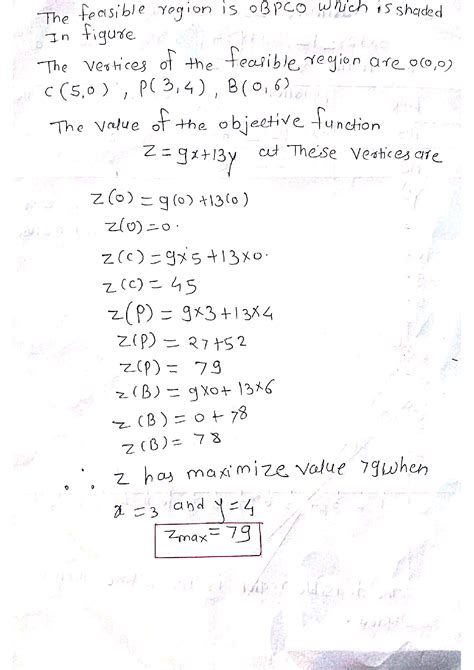 The feasible region is OBPCO which is shaded
In figure
The vertices of the feasible region are O(0,0)
C(5,0), P(3,4), B(0,6)
The value of the objective function
Z=9x+13y at These vertices are
Z(0)=9(0)+13(0)
Z(0)=0.
Z(C)=9×5+13×0.
Z(C)=45
Z(P)=9×3+13×4
Z(P)=27+52
Z(P)=79
Z(B)=9×0+13×6
Z(B)=0+78
Z(B)=78
∴ Z has maximize value 79 when
x=3 and y=4
Zmax=79